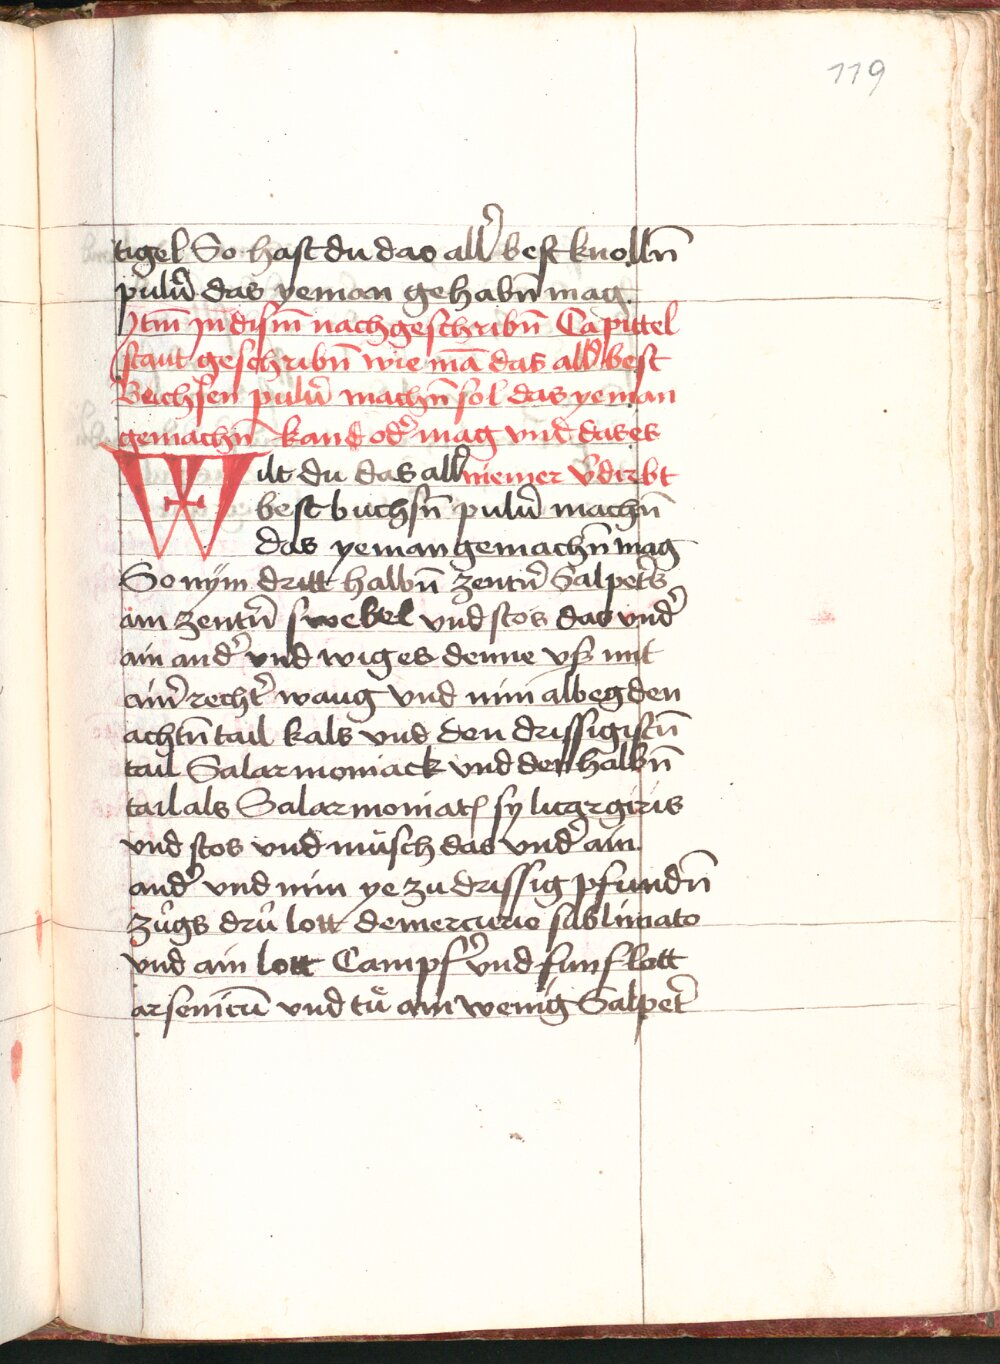 119
tigel So hast du das all' best knolln̄
pulu' das yeman gehabn̄ mag
Jtm̄ jn dism̄ nachgeschribn̄ Capittel
staut geschribn̄ wie mā das all' best
Buchsen pulu' machn̄ sol das yeman
gemachn̄ kand od' mag vnd das es
niemer v'dirbt
Wilt du das all'
best buchsn̄ pulu' machn̄
das yeman gemachn̄ mag
So nÿm dritt halbn̄ zentn' Salpet's
ain zentn' swebel vnd stos das vnd'
ain and' vnd wig es denne vß mit
ain' recht' waug vnd nim albeg den
achtn̄ tail kals vnd den drissigistn̄
tail Salarmoniack vnd den halbn̄
tail als Salarmoniack sy
vnd stos vnd müsch das vnd' ain
and' vnd nim ye zu drissig pfundn̄
zügs drü lott demercurio sublimato
vnd ain lott Campf' vnd funf lott
arsenicū vnd tuͤ ain wenig Salpet'